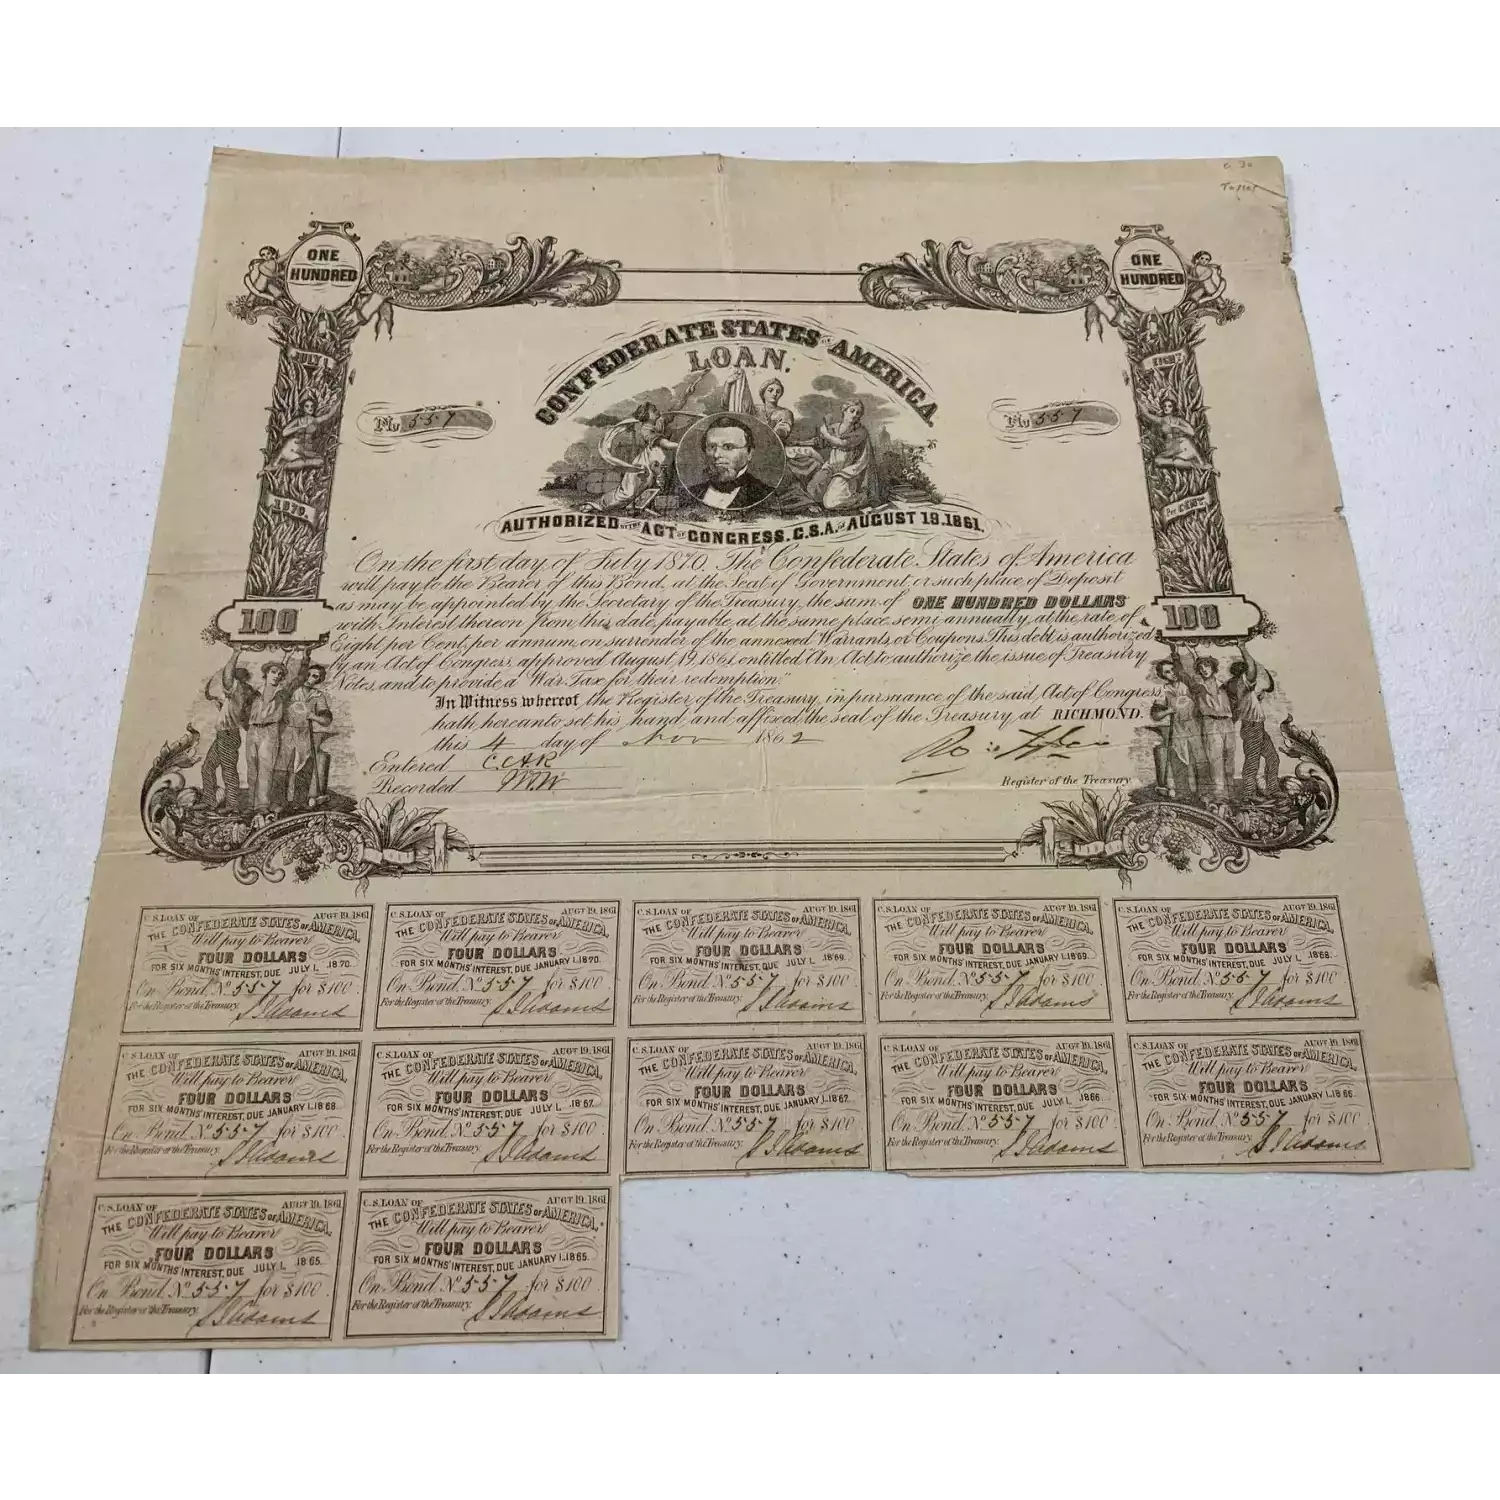 c 30
ONE
HUNDRED
ONE
HUNDRED
CONFEDERATE STATES OF AMERICA
LOAN.
JULY 1,
EIGHT
No 557
No 557
1870.
Per CENT.
AUTHORIZED BY THE ACT OF CONGRESS. C.S.A. OF AUGUST 19.1861.
On the first day of July 1870. The Confederate States of America
will pay to the Bearer of this Bond, at the Seat of Government, or such place of Deposit
as may be appointed by the Secretary of the Treasury, the sum of ONE HUNDRED DOLLARS
with Interest thereon from this date, payable at the same place, semi-annually, at the rate of
Eight per Cent, per annum, on surrender of the annexed Warrants, or Coupons. This debt is authorized
by an Act of Congress, approved August 19, 1861, entitled "An Act to authorize the issue of Treasury
Notes, and to provide a War Tax for their redemption."
100
100
In Witness whereof the Register of the Treasury, in pursuance of the said Act of Congress,
hath hereunto set his hand and affixed the seal of the Treasury, at RICHMOND.
this 4 day of Nov 1862
Entered C.A.R
Recorded W.W
Register of the Treasury.
C.S.LOAN OF AUGT 19. 1861
THE CONFEDERATE STATES OF AMERICA,
Will pay to Bearer
FOUR DOLLARS
FOR SIX MONTHS' INTEREST, DUE JULY 1, 1870.
On Bond, No 557 for $100
For the Register of the Treasury. S J Adams
C.S.LOAN OF AUGT 19. 1861
THE CONFEDERATE STATES OF AMERICA,
Will pay to Bearer
FOUR DOLLARS
FOR SIX MONTHS' INTEREST, DUE JANUARY 1. 1870.
On Bond, No 557 for $100
For the Register of the Treasury. S J Adams
C.S.LOAN OF AUGT 19. 1861
THE CONFEDERATE STATES OF AMERICA,
Will pay to Bearer
FOUR DOLLARS
FOR SIX MONTHS' INTEREST, DUE JULY 1, 1869.
On Bond, No 557 for $100
For the Register of the Treasury. S J Adams
C.S.LOAN OF AUGT 19. 1861
THE CONFEDERATE STATES OF AMERICA,
Will pay to Bearer
FOUR DOLLARS
FOR SIX MONTHS' INTEREST, DUE JANUARY 1. 1869.
On Bond, No 557 for $100
For the Register of the Treasury. S J Adams
C.S.LOAN OF AUGT 19. 1861
THE CONFEDERATE STATES OF AMERICA,
Will pay to Bearer
FOUR DOLLARS
FOR SIX MONTHS' INTEREST, DUE JULY 1, 1868.
On Bond, No 557 for $100
For the Register of the Treasury. S J Adams
C.S.LOAN OF AUGT 19. 1861
THE CONFEDERATE STATES OF AMERICA,
Will pay to Bearer
FOUR DOLLARS
FOR SIX MONTHS' INTEREST, DUE JANUARY 1. 1868.
On Bond, No 557 for $100
For the Register of the Treasury. S J Adams
C.S.LOAN OF AUGT 19. 1861
THE CONFEDERATE STATES OF AMERICA,
Will pay to Bearer
FOUR DOLLARS
FOR SIX MONTHS' INTEREST, DUE JULY 1, 1867.
On Bond, No 557 for $100
For the Register of the Treasury. S J Adams
C.S.LOAN OF AUGT 19. 1861
THE CONFEDERATE STATES OF AMERICA,
Will pay to Bearer
FOUR DOLLARS
FOR SIX MONTHS' INTEREST, DUE JANUARY 1. 1867.
On Bond, No 557 for $100
For the Register of the Treasury. S J Adams
C.S.LOAN OF AUGT 19. 1861
THE CONFEDERATE STATES OF AMERICA,
Will pay to Bearer
FOUR DOLLARS
FOR SIX MONTHS' INTEREST, DUE JULY 1, 1866.
On Bond, No 557 for $100
For the Register of the Treasury. S J Adams
C.S.LOAN OF AUGT 19. 1861
THE CONFEDERATE STATES OF AMERICA,
Will pay to Bearer
FOUR DOLLARS
FOR SIX MONTHS' INTEREST, DUE JANUARY 1. 1866.
On Bond, No 557 for $100
For the Register of the Treasury. S J Adams
C.S.LOAN OF AUGT 19. 1861
THE CONFEDERATE STATES OF AMERICA,
Will pay to Bearer
FOUR DOLLARS
FOR SIX MONTHS' INTEREST, DUE JULY 1, 1865.
On Bond, No 557 for $100
For the Register of the Treasury. S J Adams
C.S.LOAN OF AUGT 19. 1861
THE CONFEDERATE STATES OF AMERICA,
Will pay to Bearer
FOUR DOLLARS
FOR SIX MONTHS' INTEREST, DUE JANUARY 1. 1865.
On Bond, No 557 for $100
For the Register of the Treasury. S J Adams